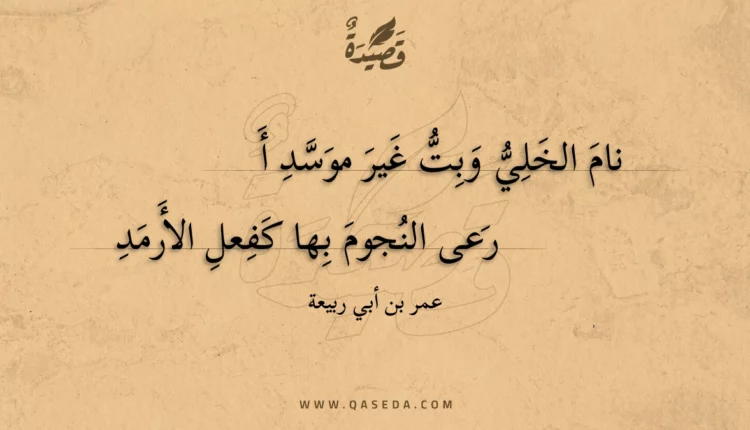 قَصِيْدَةٌ
نامَ الخَلِيُّ وَبِتُّ غَيرَ موَسَّدِ أَ
رَعى النُجومَ بِها كَفِعلِ الأَرمَدِ
عمر بن أبي ربيعة
WWW.QASEDA.COM